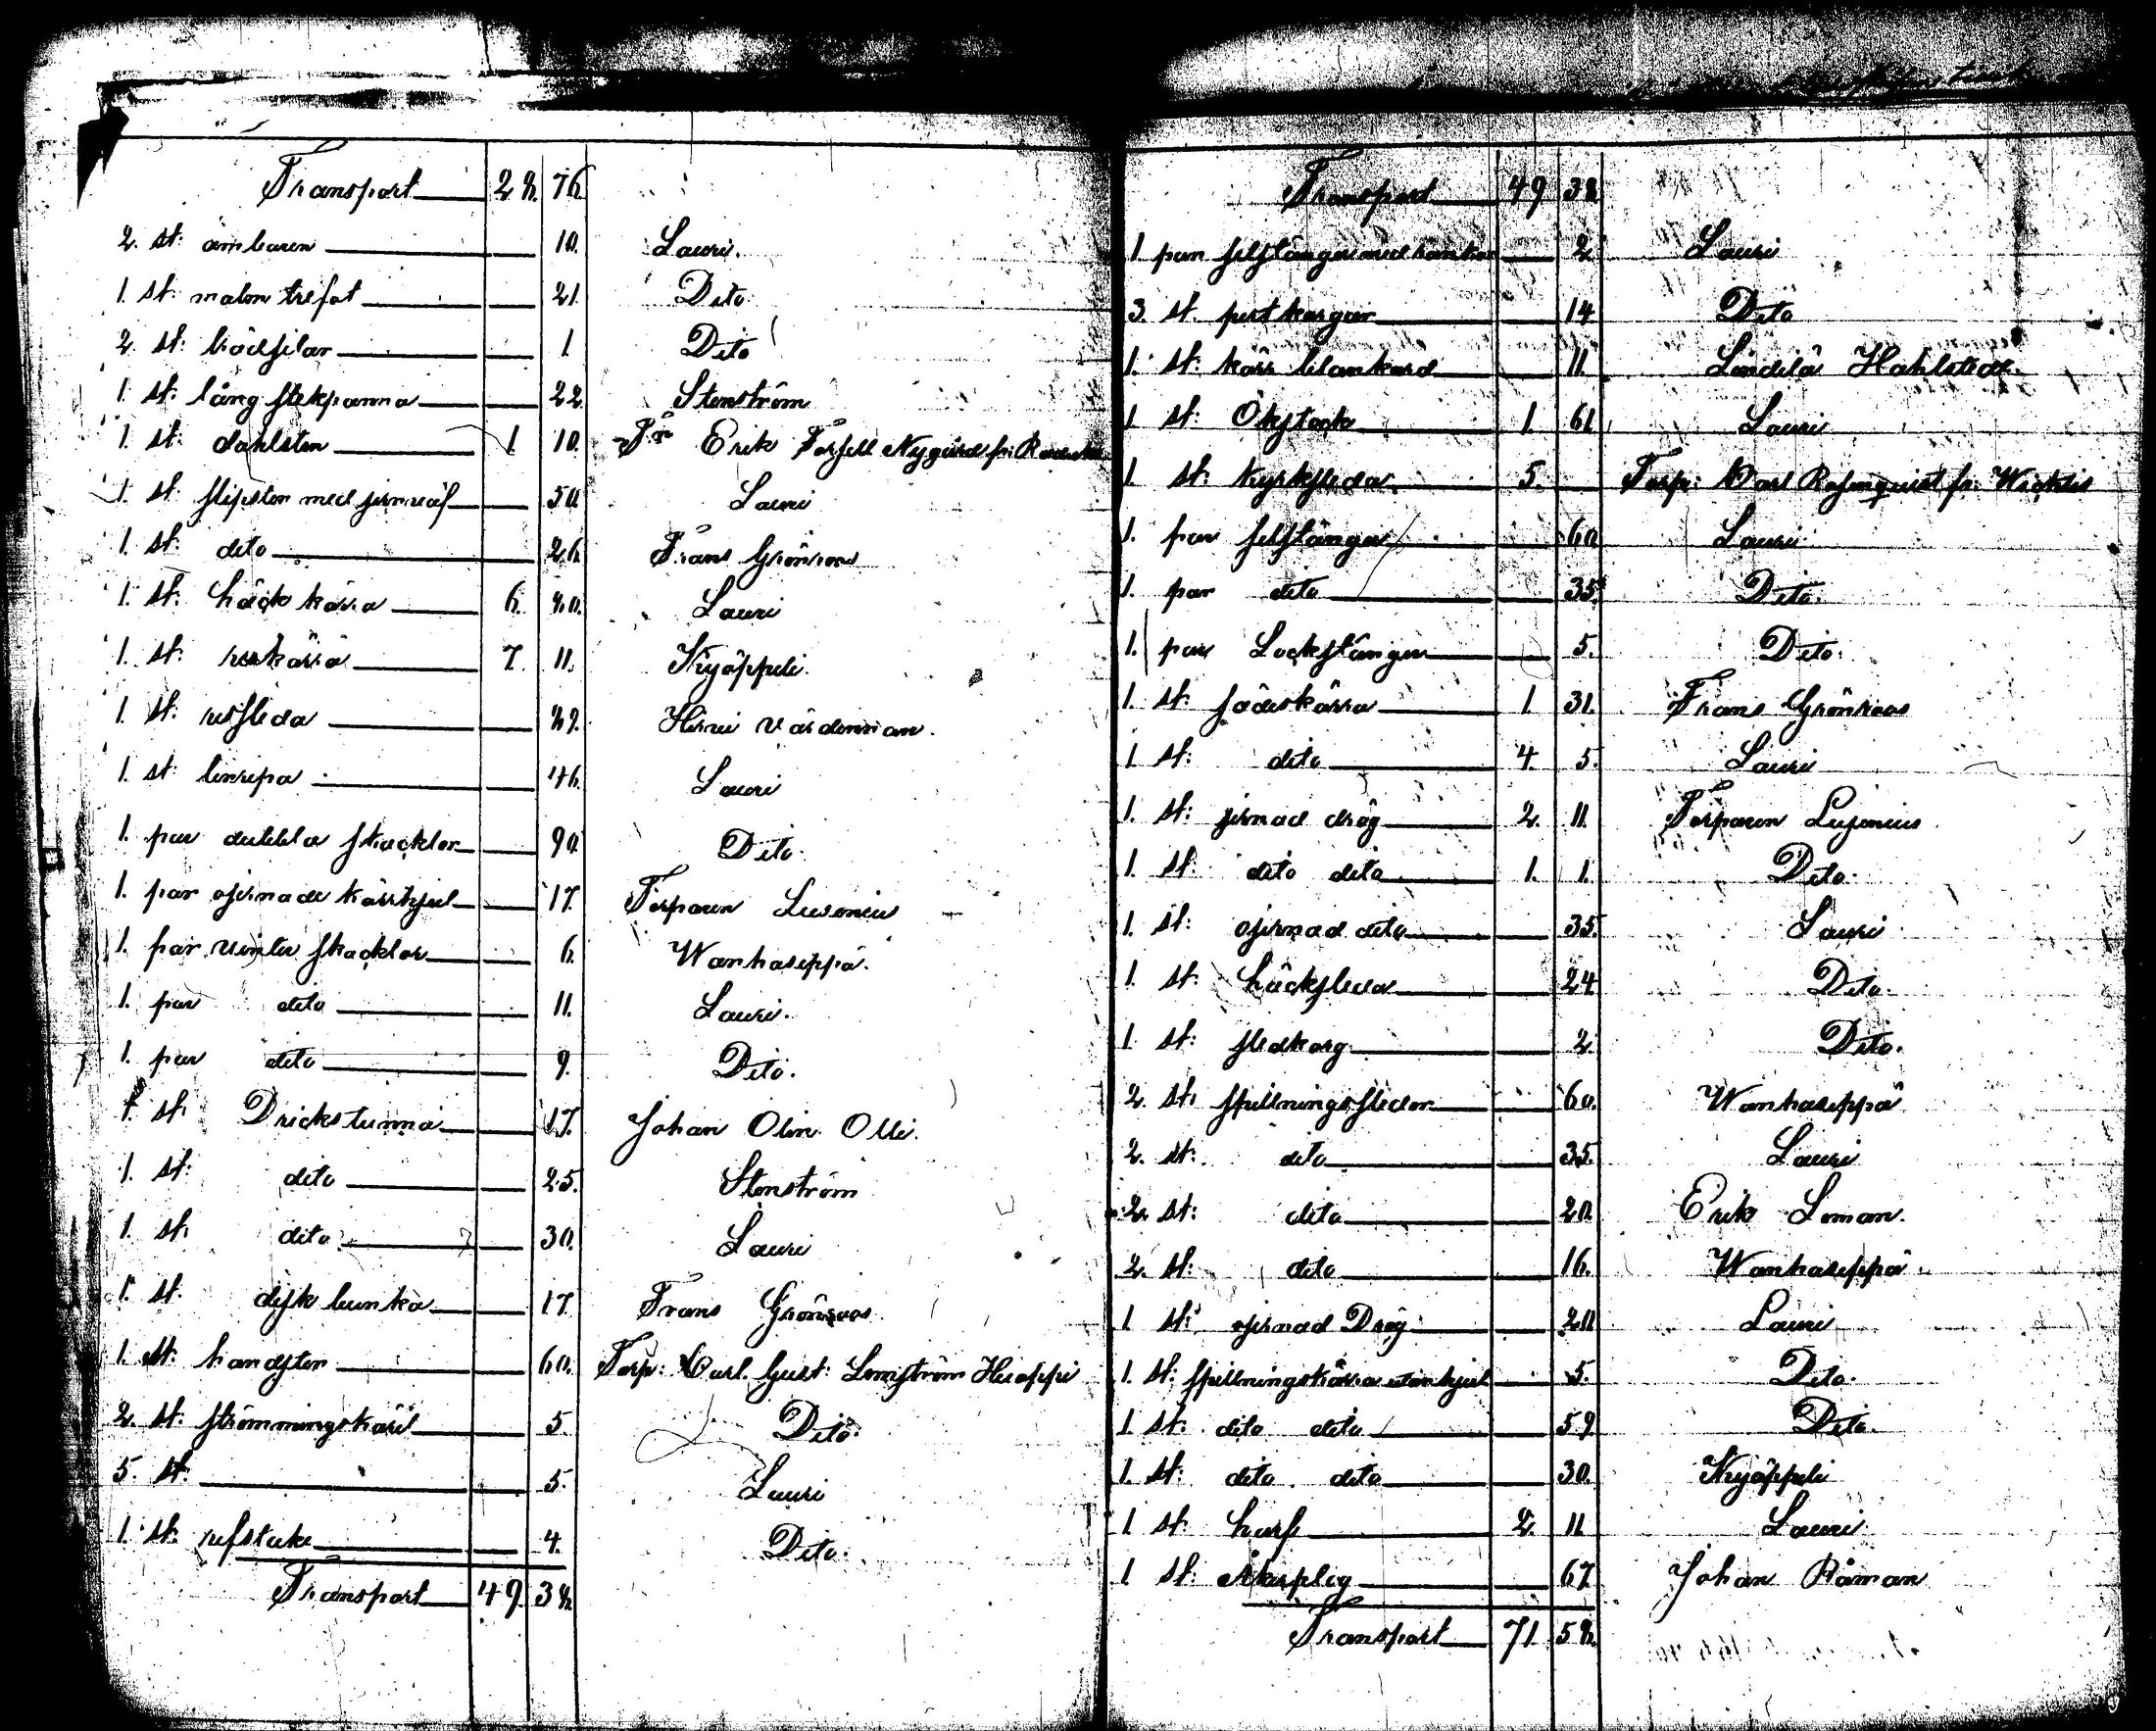 Transport 28. 76.
2. st: ämbaren 10. Lauri.
1. st: malm trefot 21. Dito.
2. st: 1 Dito
1. st: lång stekpanna 22. Stenström
1. st: dahlsten 1 10. Erik Nygård fr:
1. st. slipsten med jernväf 50. Lauri
1. st: dito 26. Frans Grönroos
1. st: häck kärra 6. 80. Lauri
1. st: reskärra 7. 11. Kyöppeli.
1. st: ressleda 89. Hirvi värdinnan.
1. st: linripa 46. Lauri
1. par dubbla skacklor 90. Dito.
1. par ojernade kärrhjul 17. Torparen
1. par vinter skacklor 6. Wanhaseppä.
1. par dito 11. Lauri.
1. par dito 9. Dito.
1. st. Drickstunna 17. Johan Olin Olli.
1. st: dito 25. Stenström
1. st. dito 30. Lauri
1. st. disk bunka 17. Frans Grönroos
1. st: handsten 60. Torp: Carl Gust: Huoppi
2. st: strömmingskäril 5. Dito.
5. st: 5. Lauri
1. st: 4. Dito.
Transport 49. 38.
Transport 49 38.
1 par 2 Lauri
3. st. kargar 14 Dito
1. st: kärr 11. Hahlstedt.
1 st: Okstock 1. 61. Lauri
1 st: kyrksleda 5. Torp: Carl fr:
1. par selstänger 60. Lauri
1. par dito 35. Dito.
1. par Lockstänger 5. Dito.
1. st: födeskärra 1 31. Frans Grönroos
1 st: dito 4. 5. Lauri
1. st: jernad drög 2. 11. Torparen
1. st: dito dito 1. 1. Dito.
1. st: ojernad dito 35. Lauri
1. st: häcksleda 24 Dito.
1. st: sledkorg 2. Dito.
2. st: spillningssledor 60. Wanhaseppä
2. st: dito 35. Lauri
2. st: dito 20. Erik Loman.
2. st: dito 16. Wanhaseppä.
1 st: ojernad Drög 20 Lauri
1. st: spillningskärra utan hjul 5. Dito.
1 st: dito dito 59 Dito.
1. st: dito dito 30. Kyöppeli
1 st: harf 2. 11 Lauri.
1 st: Åkerplog 67. Johan Råman
Transport 71. 58.